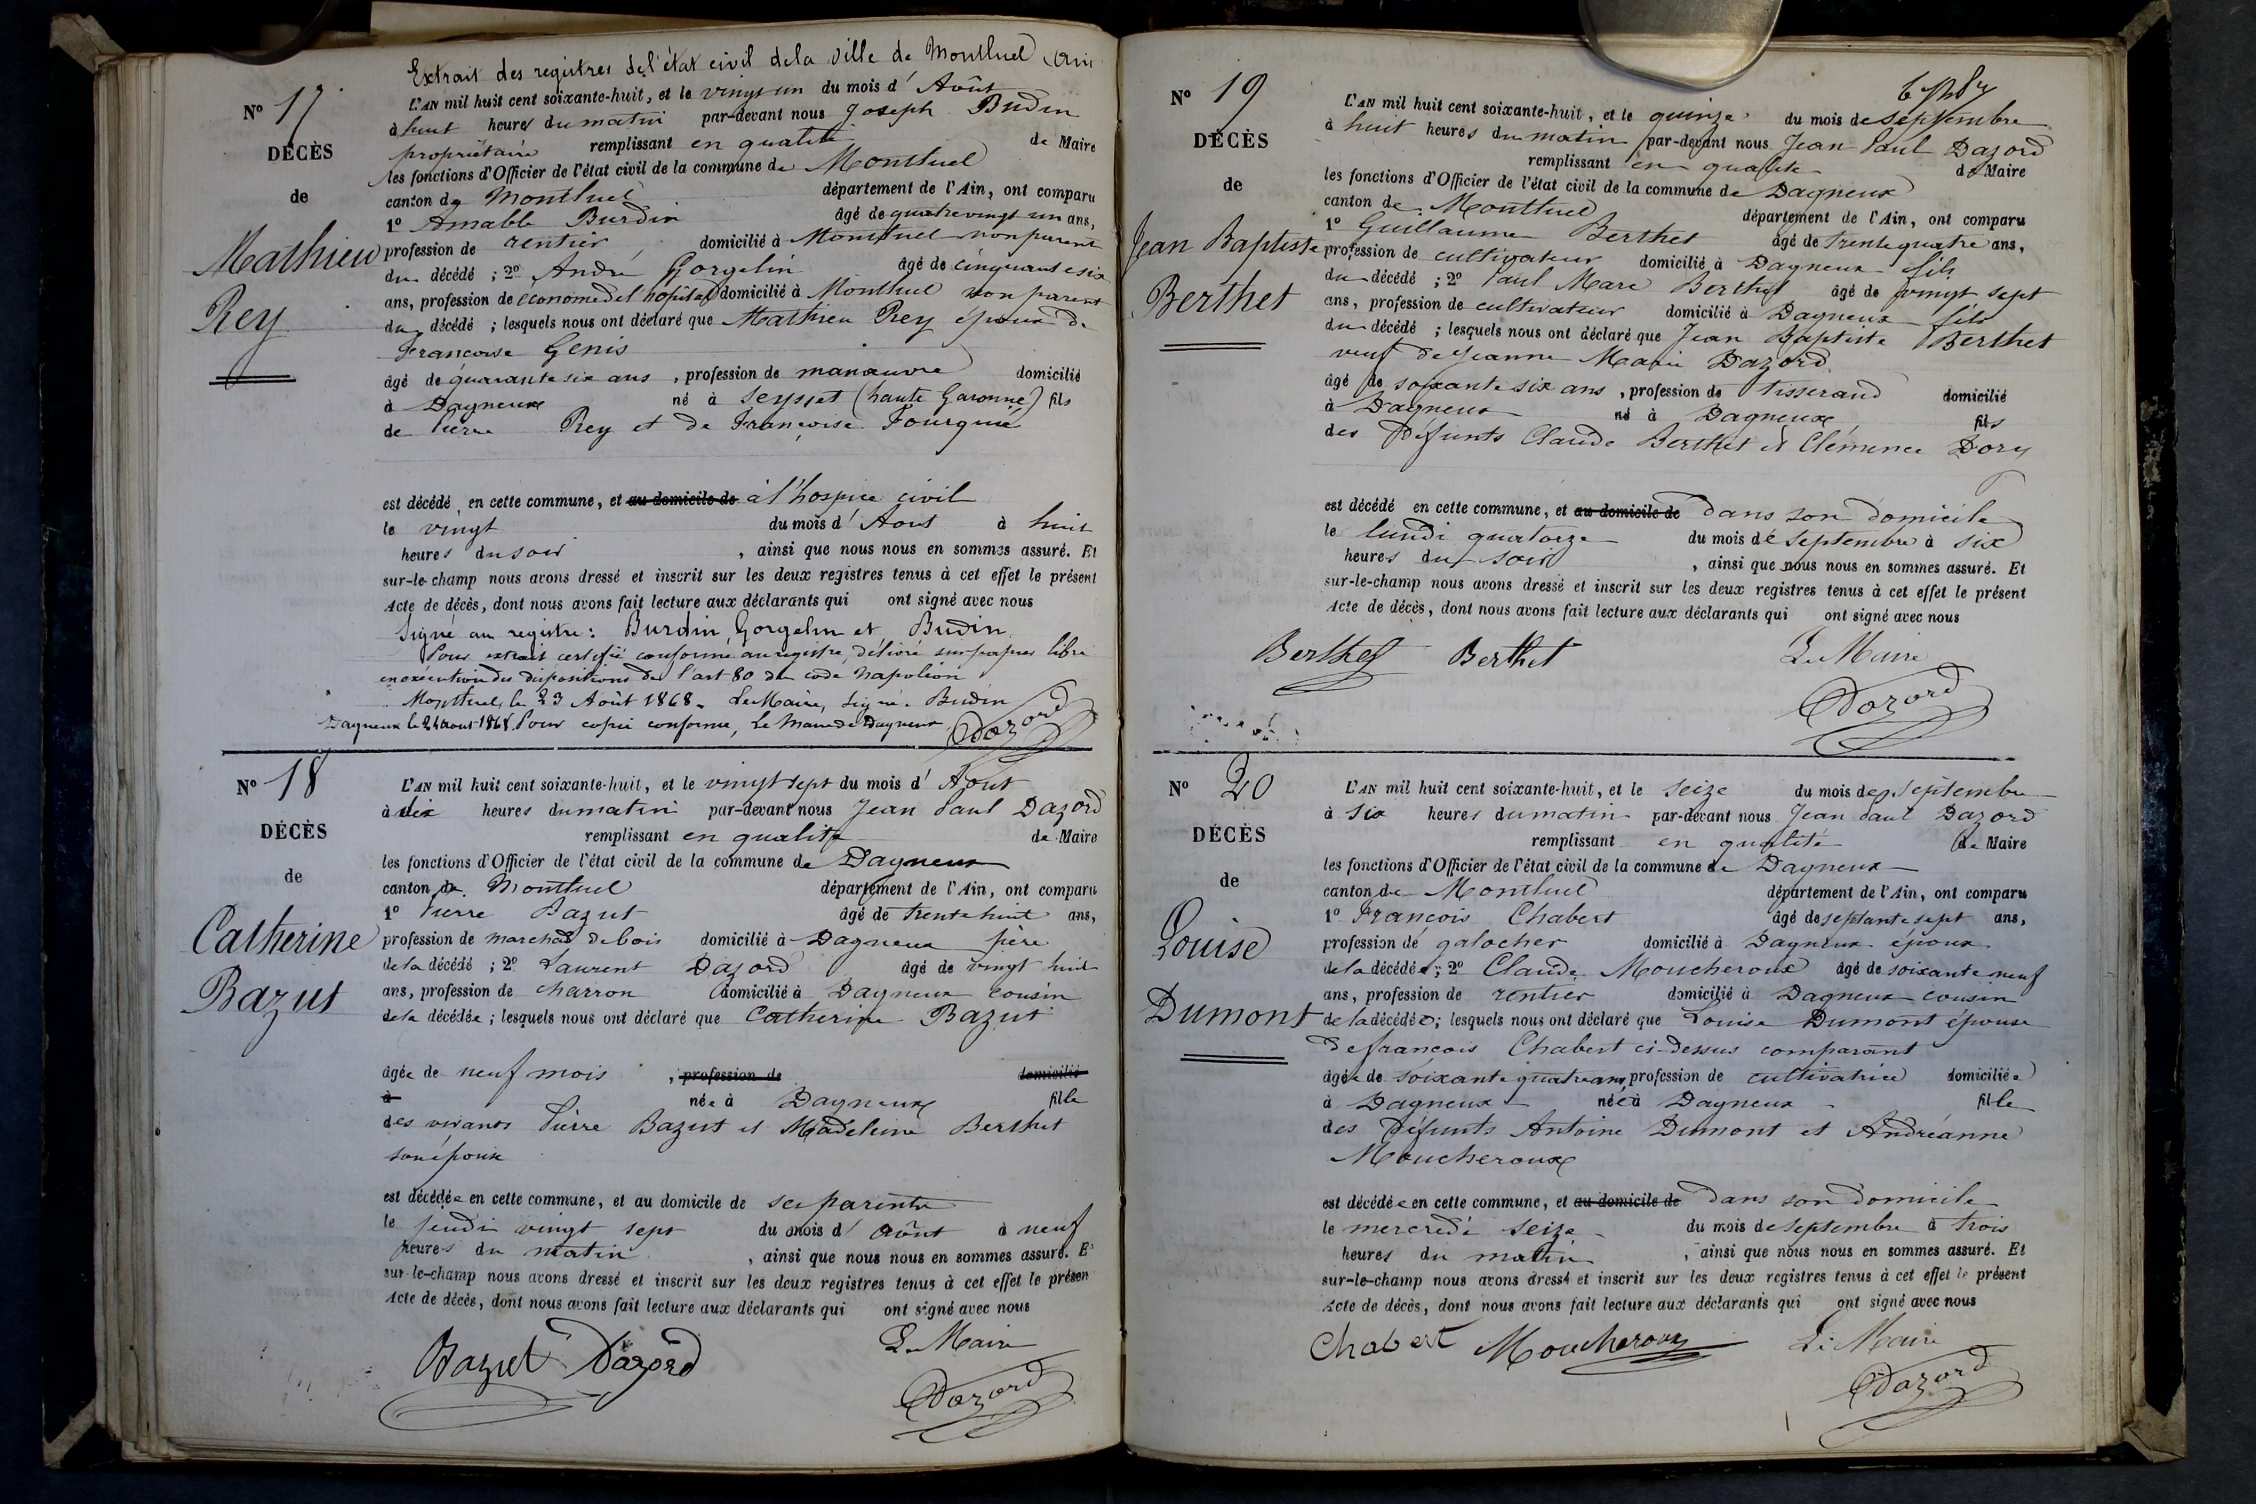 Extrait des registres de l'état civil de la ville de Montluel (Ain
N° 17
DÉCÈS
de
Mathieu
Rey
L'AN mil huit cent soixante-huit, et le vingt un du mois d'Août
à huit heures du matin par-devant nous Joseph Budin
propriétaire remplissant en qualité de Maire
les fonctions d'Officier de l'état civil de la commune de Montluel
canton de Montluel département de l'Ain, ont comparu
1° Amable Burdin âgé de quatre vingt un ans,
profession de rentier domicilié à Montluel non parent
du décédé ; 2° André Gorgelin âgé de cinquante six
ans, profession de économe de l'hopital domicilié à Montluel non parent
du décédé ; lesquels nous ont déclaré que Mathieu Rey époux de
Francoise Genis
âgé de quarante six ans, profession de manœuvre domicilié
à Dagneux né à Seysset (haute Garonne) fils
de Pierre Rey et de Françoise Fourquié
est décédé en cette commune, et au domicile de à l'hospice civil
le vingt du mois d'Aout à huit
heures du soir, ainsi que nous nous en sommes assuré. Et
sur-le-champ nous avons dressé et inscrit sur les deux registres tenus à cet effet le présent
Acte de décès, dont nous avons fait lecture aux déclarants qui ont signé avec nous
Signé au registre : Burdin, Gorgelin et Budin.
Pour extrait certifié conforme au registre, délivré sur papier libre
en exécution des dispositions de l'art 80 du code Napoléon
Montluel, le 23 Août 1868. Le Maire, Signé : Budin
Dagneux le 24 aout 1868 Pour copie conforme, Le Maire de Dagneux Dazord
N° 18
DÉCÈS
de
Catherine
Bazut
L'AN mil huit cent soixante-huit, et le vingt sept du mois d'Aout
à dix heures du matin par-devant nous Jean Paul Dazord
remplissant en qualité de Maire
les fonctions d'Officier de l'état civil de la commune de Dagneux
canton de Montluel département de l'Ain, ont comparu
1° Pierre Bazut âgé de trente huit ans,
profession de marchad de bois domicilié à Dagneux père
de la décédé ; 2° Laurent Dazord âgé de vingt huit
ans, profession de charron domicilié à Dagneux cousin
de la décédée ; lesquels nous ont déclaré que Catherine Bazut
âgée de neuf mois, profession de domicilié
à née à Dagneux fille
des vivants Pierre Bazut et Madeleine Berthet
son épouse
est décédée en cette commune, et au domicile de ses parents
le jeudi vingt sept du mois d'août à neuf
heures du matin, ainsi que nous nous en sommes assuré. Et
sur-le-champ nous avons dressé et inscrit sur les deux registres tenus à cet effet le présen
Acte de décès, dont nous avons fait lecture aux déclarants qui ont signé avec nous
Bazut Dazord
Le Maire
Dazord
N° 19
DÉCÈS
de
Jean Baptiste
Berthet
L'AN mil huit cent soixante-huit, et le quinze du mois de septembre
à huit heures du matin par-devant nous Jean Paul Dazord
remplissant en qualité de Maire
les fonctions d'Officier de l'état civil de la commune de Dagneux
canton de Montluel département de l'Ain, ont comparu
1° Guillaume Berthet âgé de trente quatre ans,
profession de cultivateur domicilié à Dagneux fils
du décédé ; 2° Paul Marc Berthet âgé de vingt sept
ans, profession de cultivateur domicilié à Dagneux fils
du décédé ; lesquels nous ont déclaré que Jean Baptiste Berthet
veuf de Jeanne Marie Dazord
âgé de soixante six ans, profession de tisserand domicilié
à Dagneux né à Dagneux fils
des Défunts Claude Berthet et Clémence Dory
est décédé en cette commune, et au domicile de dans son domicile
le lundi quatorze du mois de septembre à six
heures du soir, ainsi que nous nous en sommes assuré. Et
sur-le-champ nous avons dressé et inscrit sur les deux registres tenus à cet effet le présent
Acte de décès, dont nous avons fait lecture aux déclarants qui ont signé avec nous
Berthet Berthet
Le Maire
Dazord
N° 20
DÉCÈS
de
Louise
Dumont
L'AN mil huit cent soixante-huit, et le seize du mois de septembre
à six heures du matin par-devant nous Jean Paul Dazord
remplissant en qualité de Maire
les fonctions d'Officier de l'état civil de la commune de Dagneux
canton de Montluel département de l'Ain, ont comparu
1° François Chabert âgé de septante sept ans,
profession de galocher domicilié à Dagneux époux
de la décédée ; 2° Claude Moucheroux âgé de soixante neuf
ans, profession de rentier domicilié à Dagneux cousin
de la décédée ; lesquels nous ont déclaré que Louise Dumont épouse
de françois Chabert ci-dessus comparant
âgée de soixante quatre ans, profession de cultivatrice domiciliée
à Dagneux née à Dagneux fille
des Défunts Antoine Dumont et Andréanne
Moucheroux
est décédée en cette commune, et au domicile de dans son domicile
le mercredi seize du mois de septembre à trois
heures du matin, ainsi que nous nous en sommes assuré. Et
sur-le-champ nous avons dressé et inscrit sur les deux registres tenus à cet effet le présent
Acte de décès, dont nous avons fait lecture aux déclarants qui ont signé avec nous
Chabert Moucheroux
Le Maire
Dazord